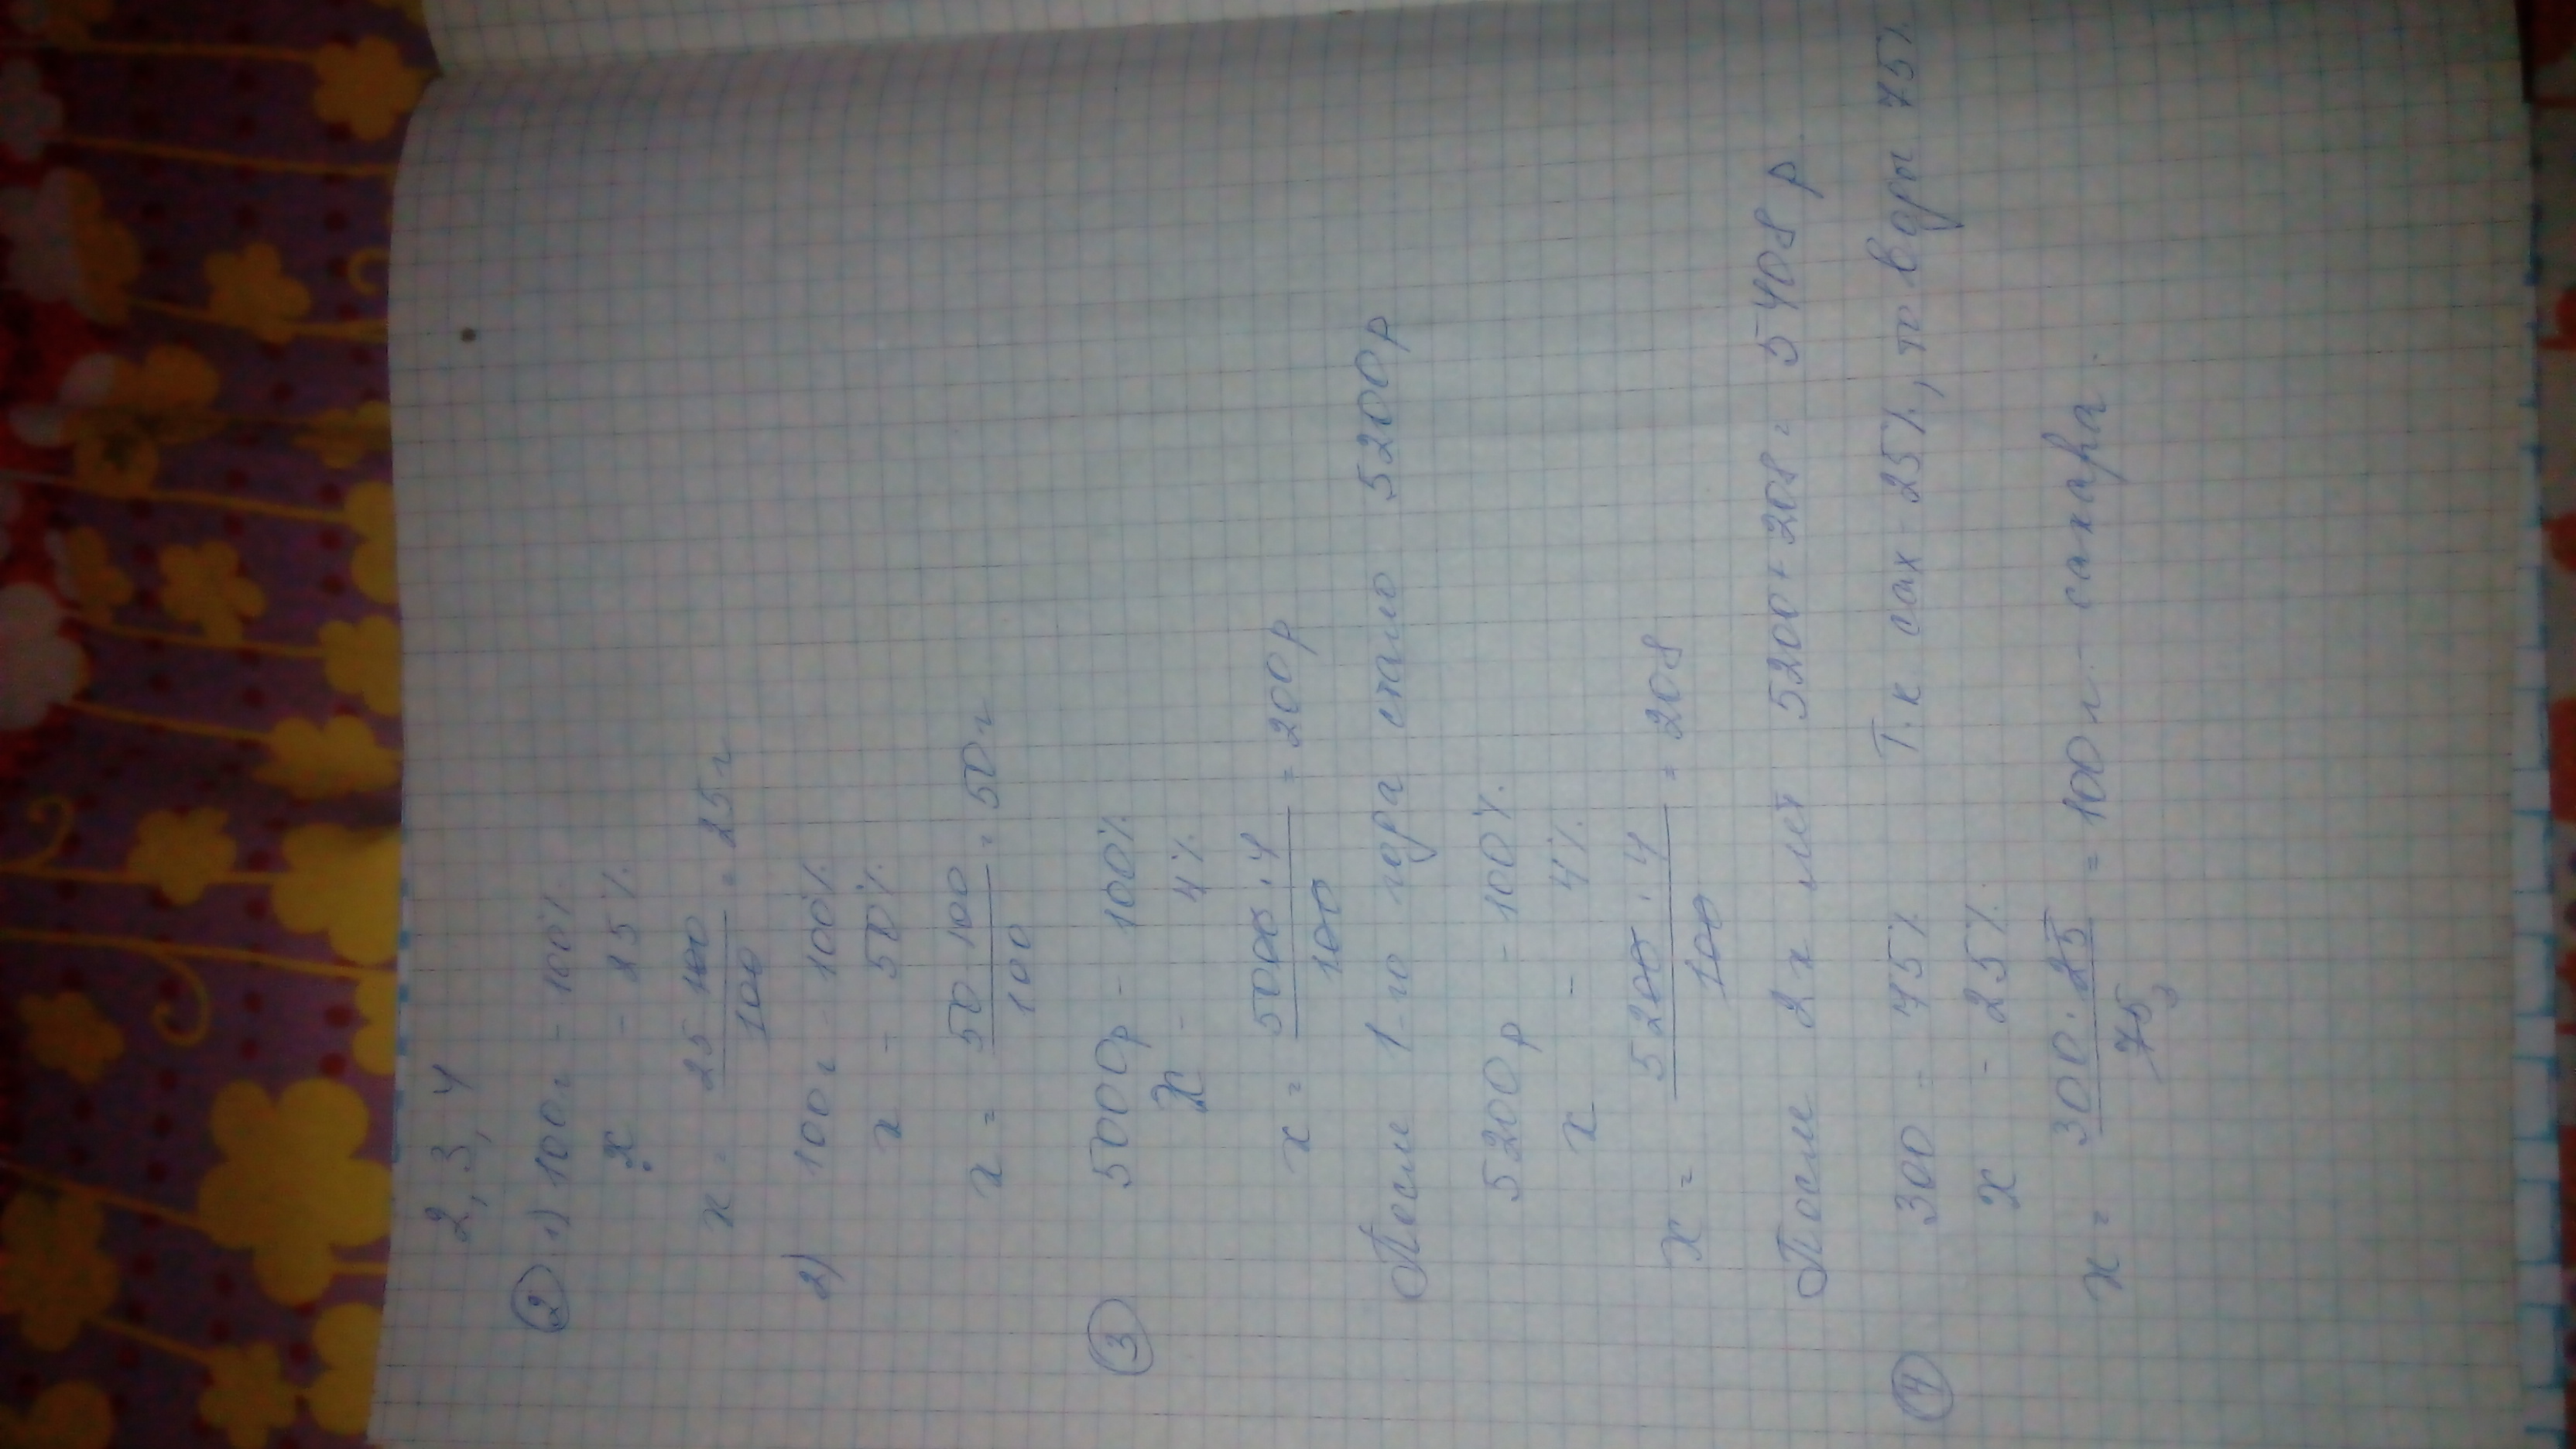 2, 3, 4
② 1) 100г - 100%
x - 25%
x = 25 100 / 100 = 25г
2) 100г - 100%
x - 50%
x = 50 100 / 100 = 50г
③ 5000р - 100%
x - 4%
x = 5000 · 4 / 100 = 200р
После 1-го года стало 5200р
5200р - 100%
x - 4%
x = 5200 · 4 / 100 = 208
После 2х лет 5200 + 208 = 5408р
④ 300 - 75% Т.к сах - 25%, то воды 75%
x - 25%
x = 300 · 25 / 75 3 = 100г - сахара.